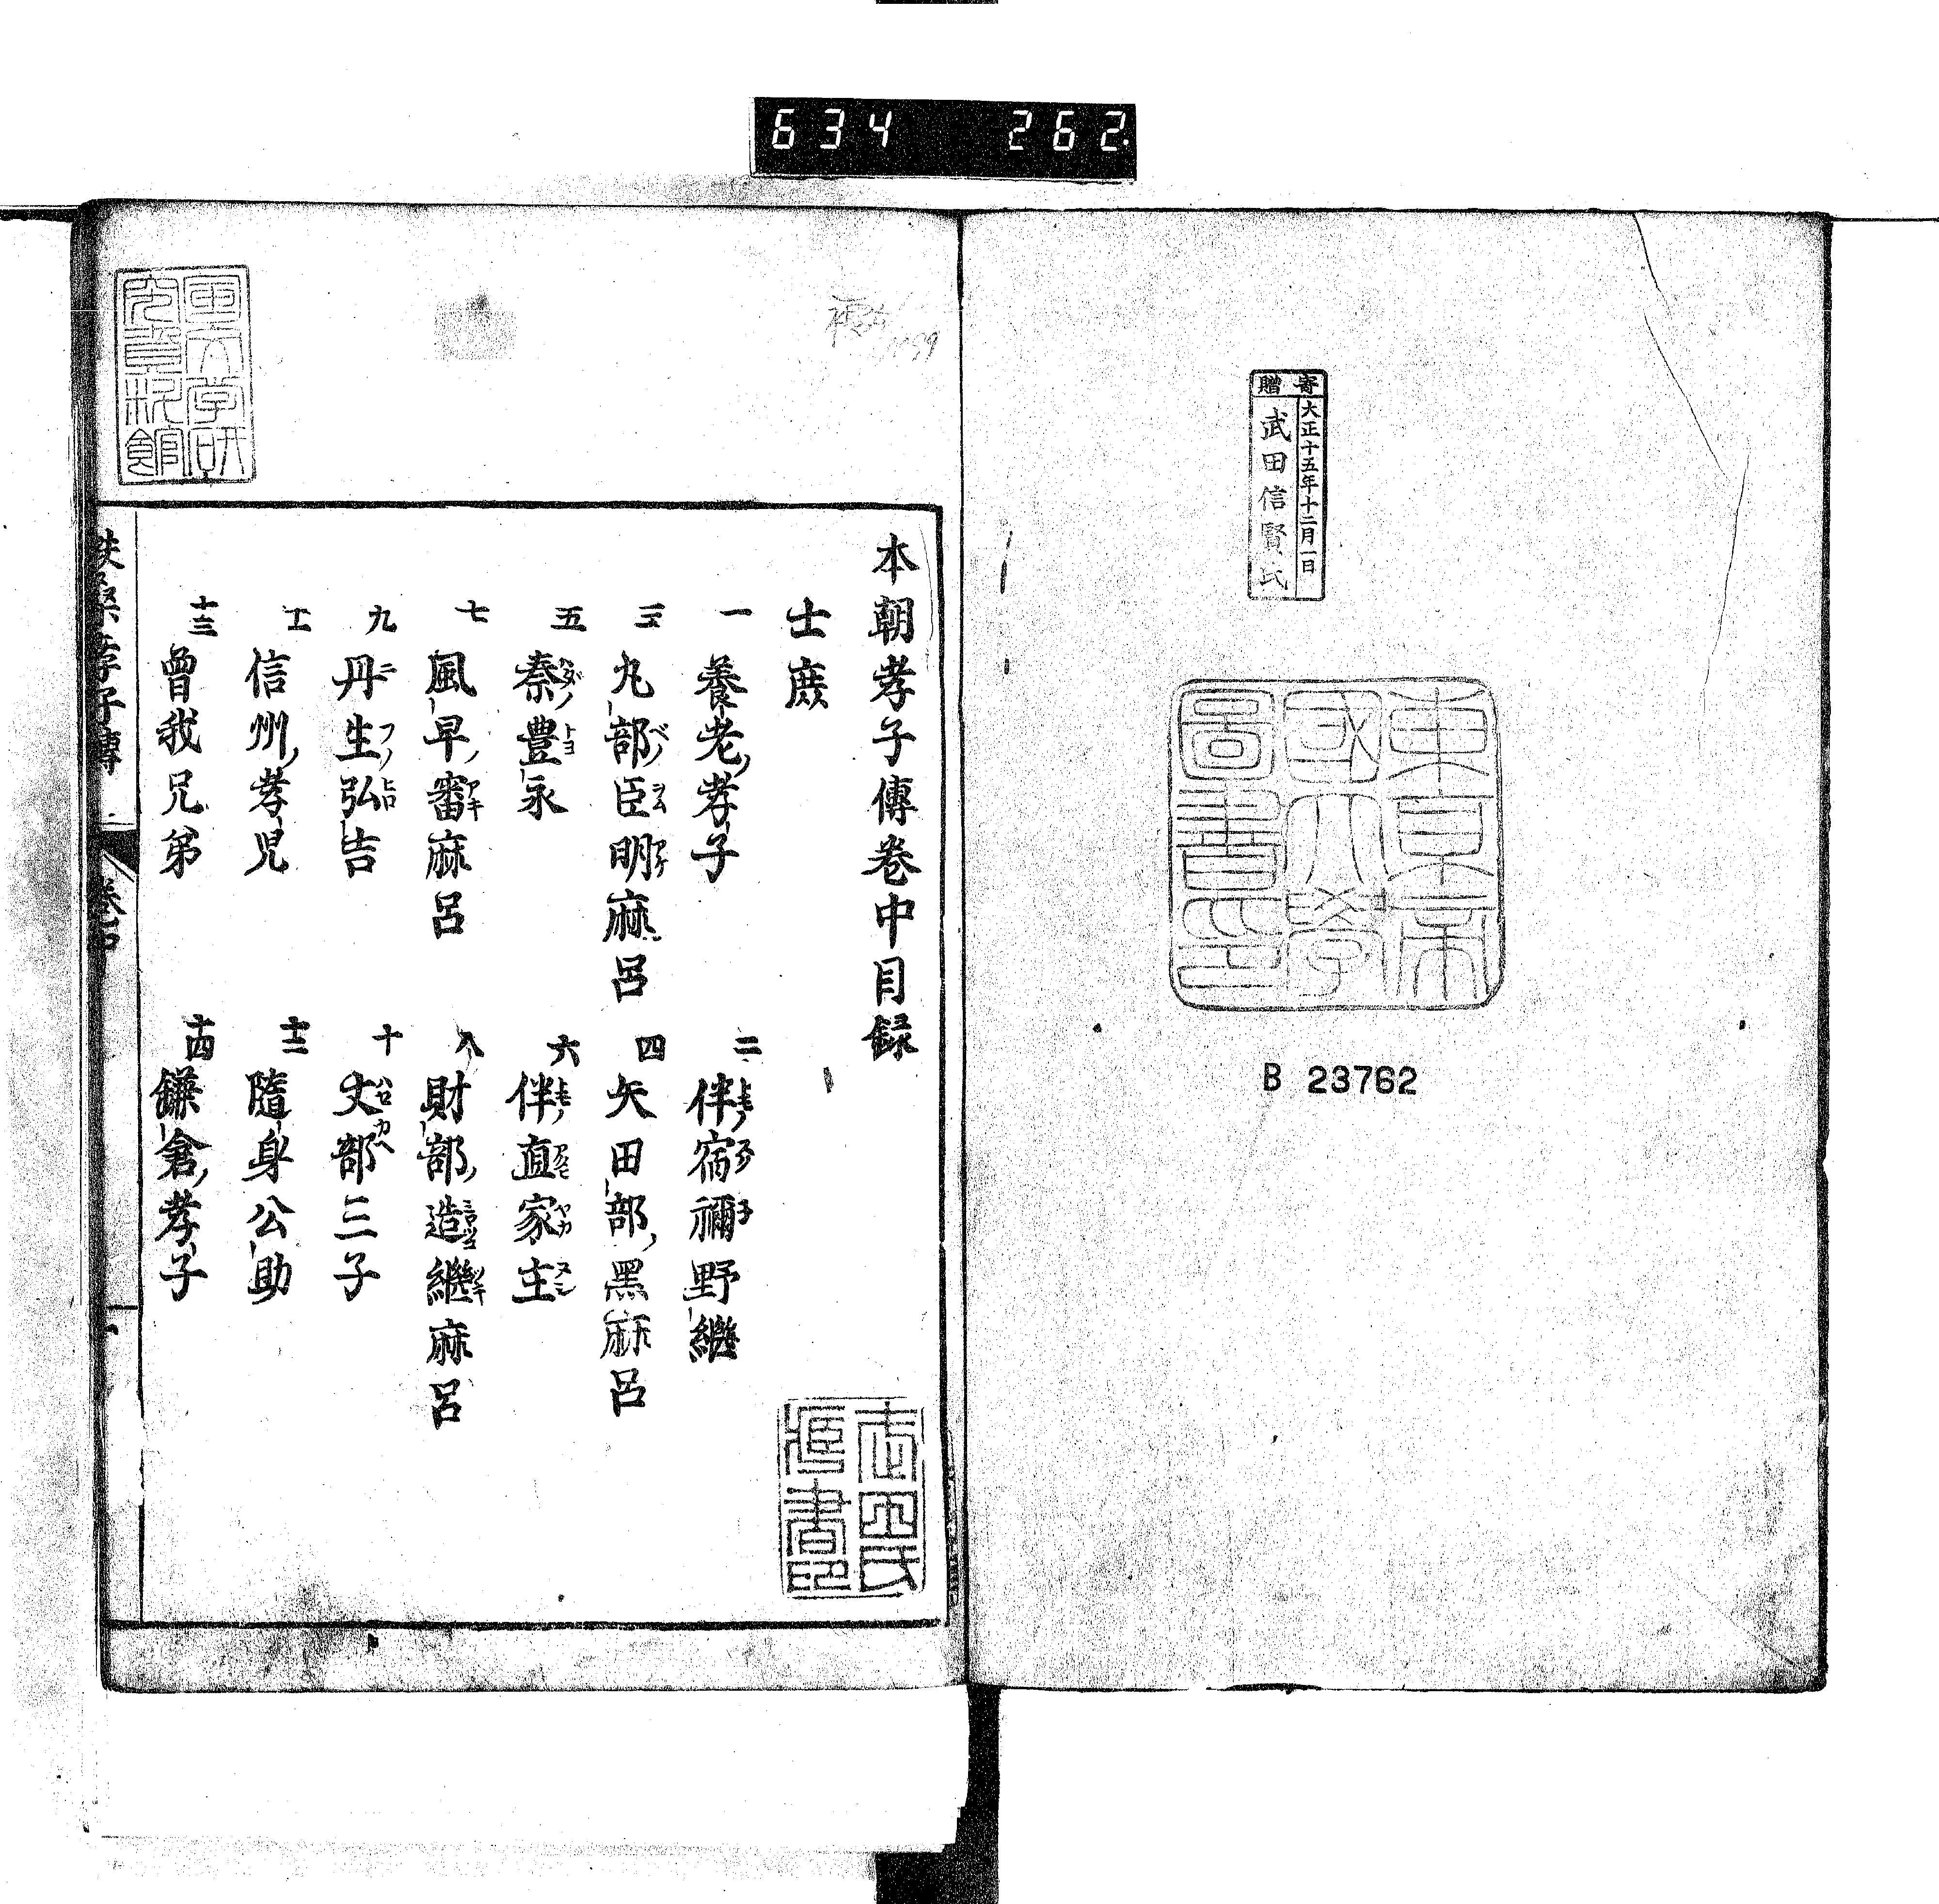 634 262.
寄贈
大正十五年十二月一日
武田信賢氏
東京帝
國大學
圖書印
B 23762
本朝孝子傳卷中目録
士庶
一 養老孝子
二 伴宿禰野繼
三 丸部臣明麻呂
四 矢田部黑麻呂
五 秦豊永
六 伴直家主
七 風早審麻呂
八 財部造繼麻呂
九 丹生弘吉
十 丈部三子
十一 信州孝児
十二 隨身公助
十三 曾我兄弟
十四 鎌倉孝子
藏書印
國文学研
究資料館
孝子傳
卷中